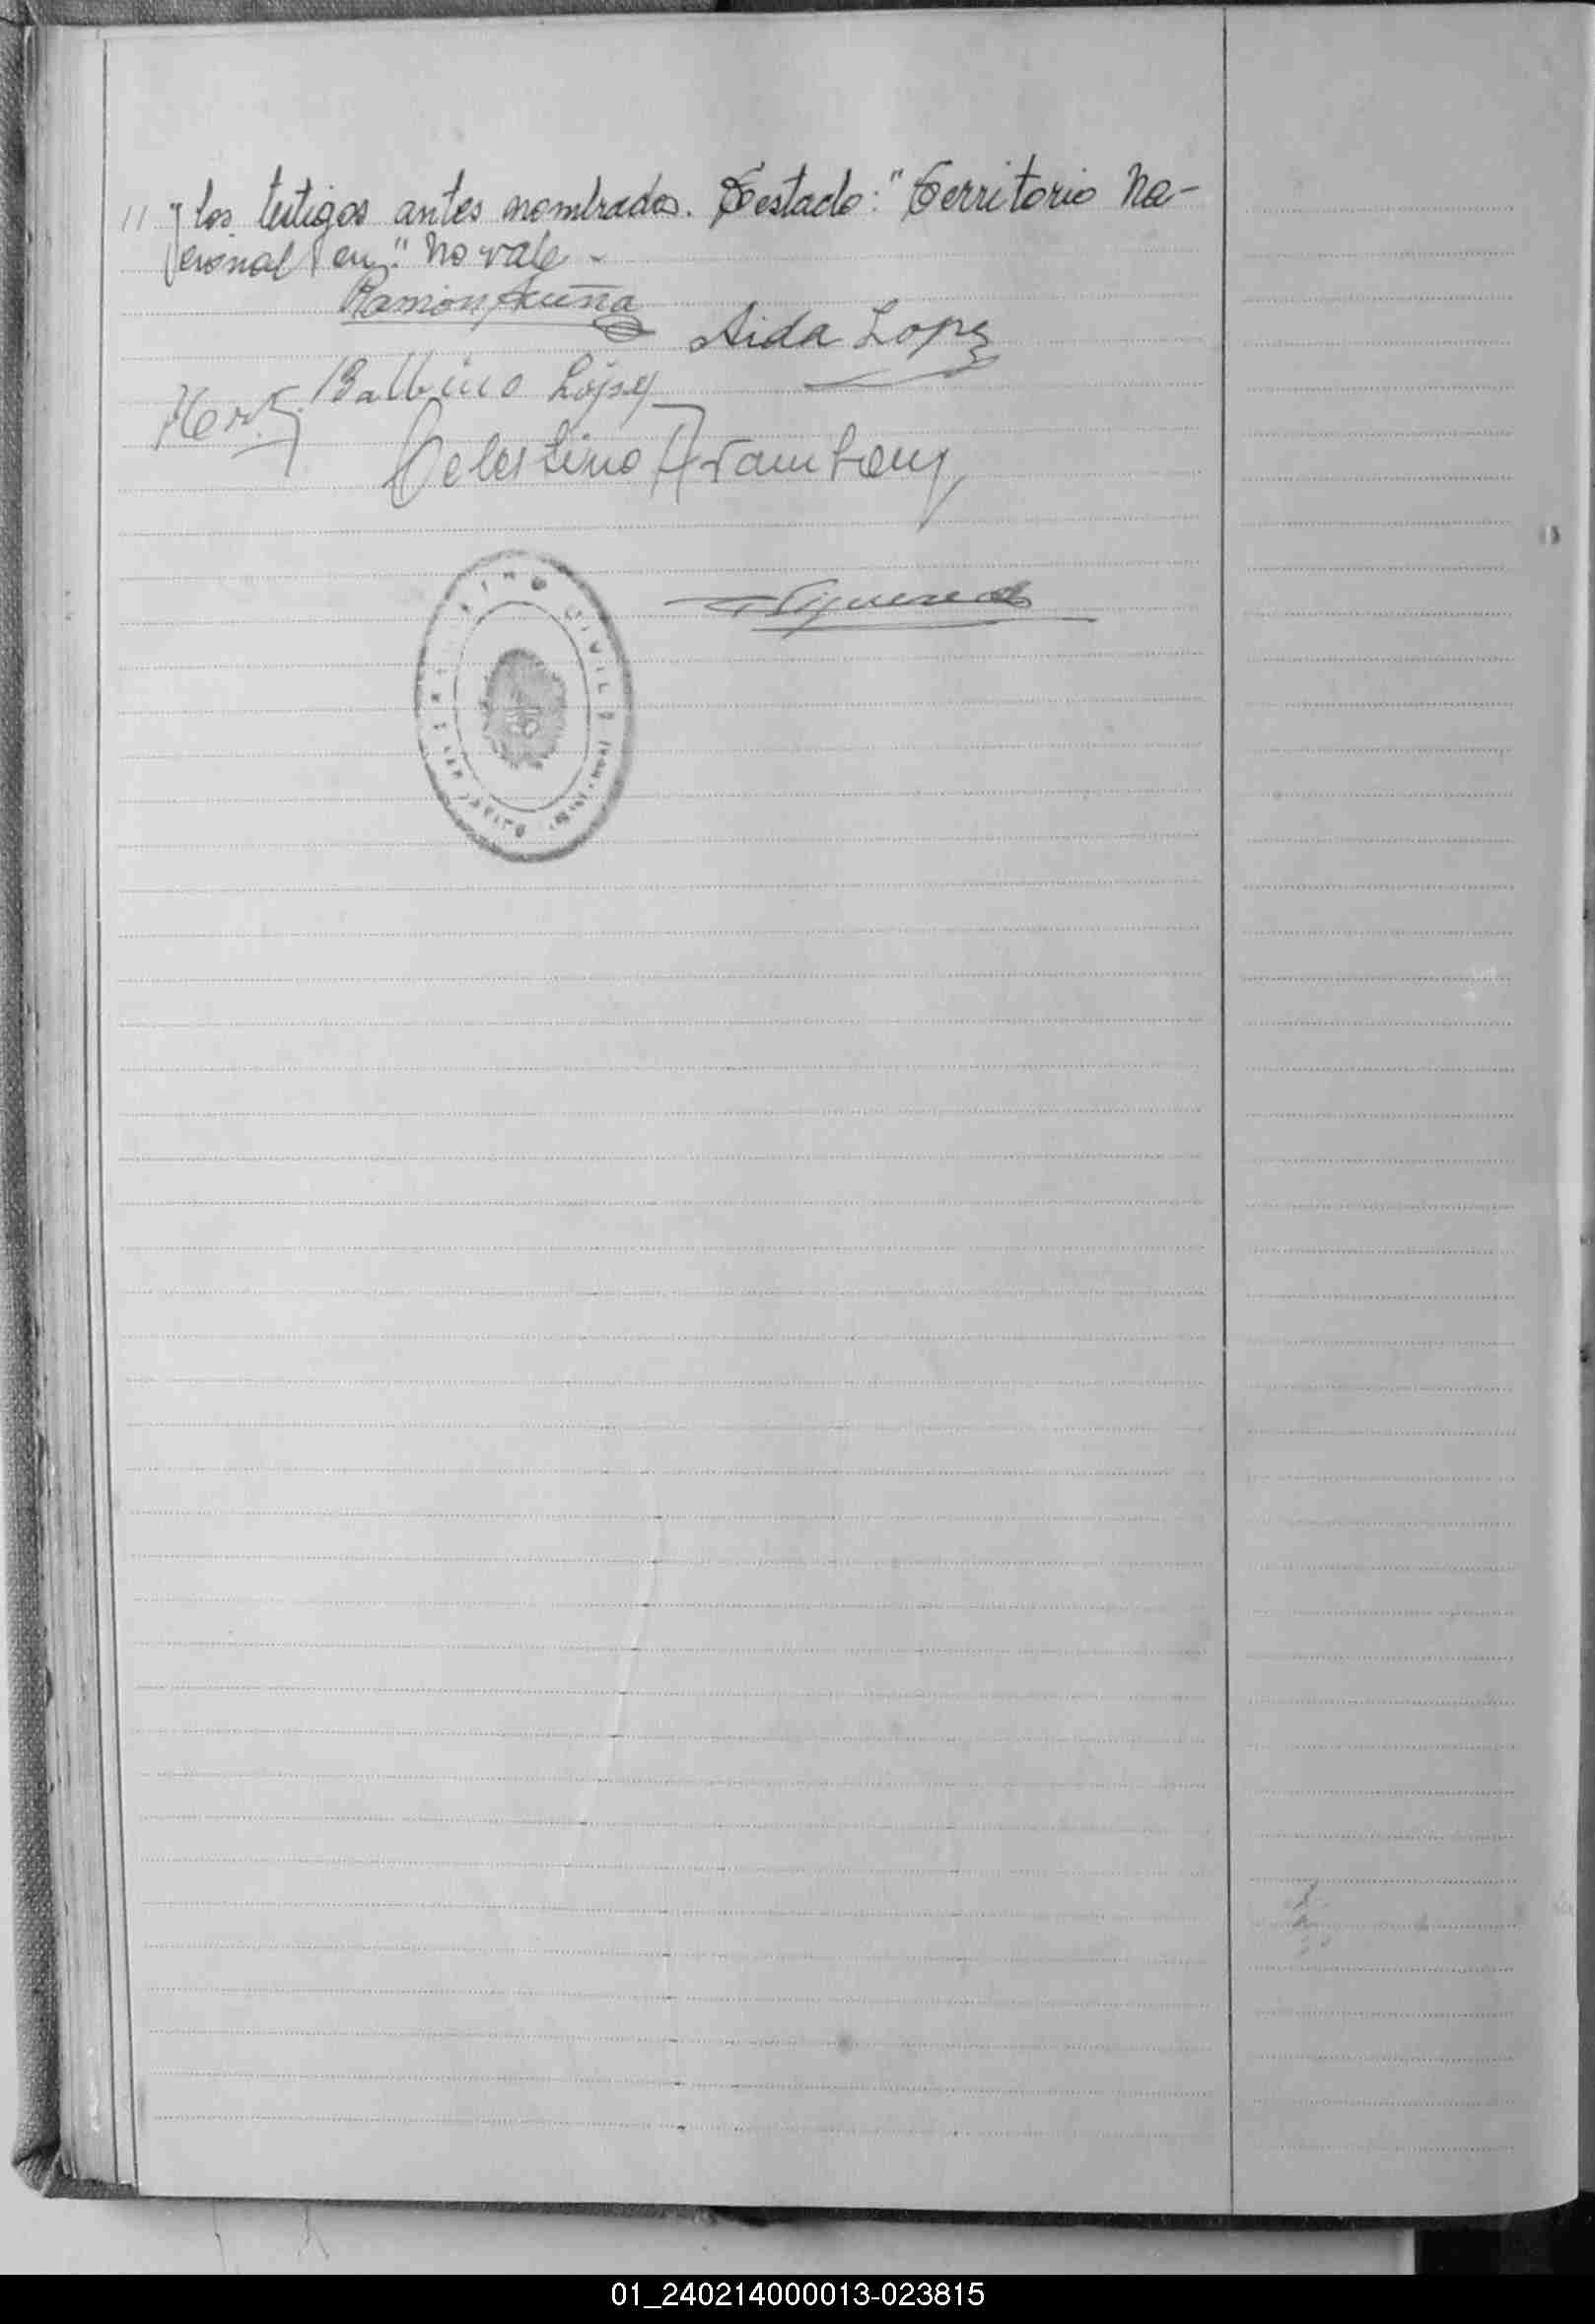 // y los testigos antes nombrados. Testado: "Territorio Na-
cional en" No vale -
Ramón Acuña
Aida Lopez
Balbino López
Celestino Aramberry
Figueredo
CIVIL
01_240214000013-023815